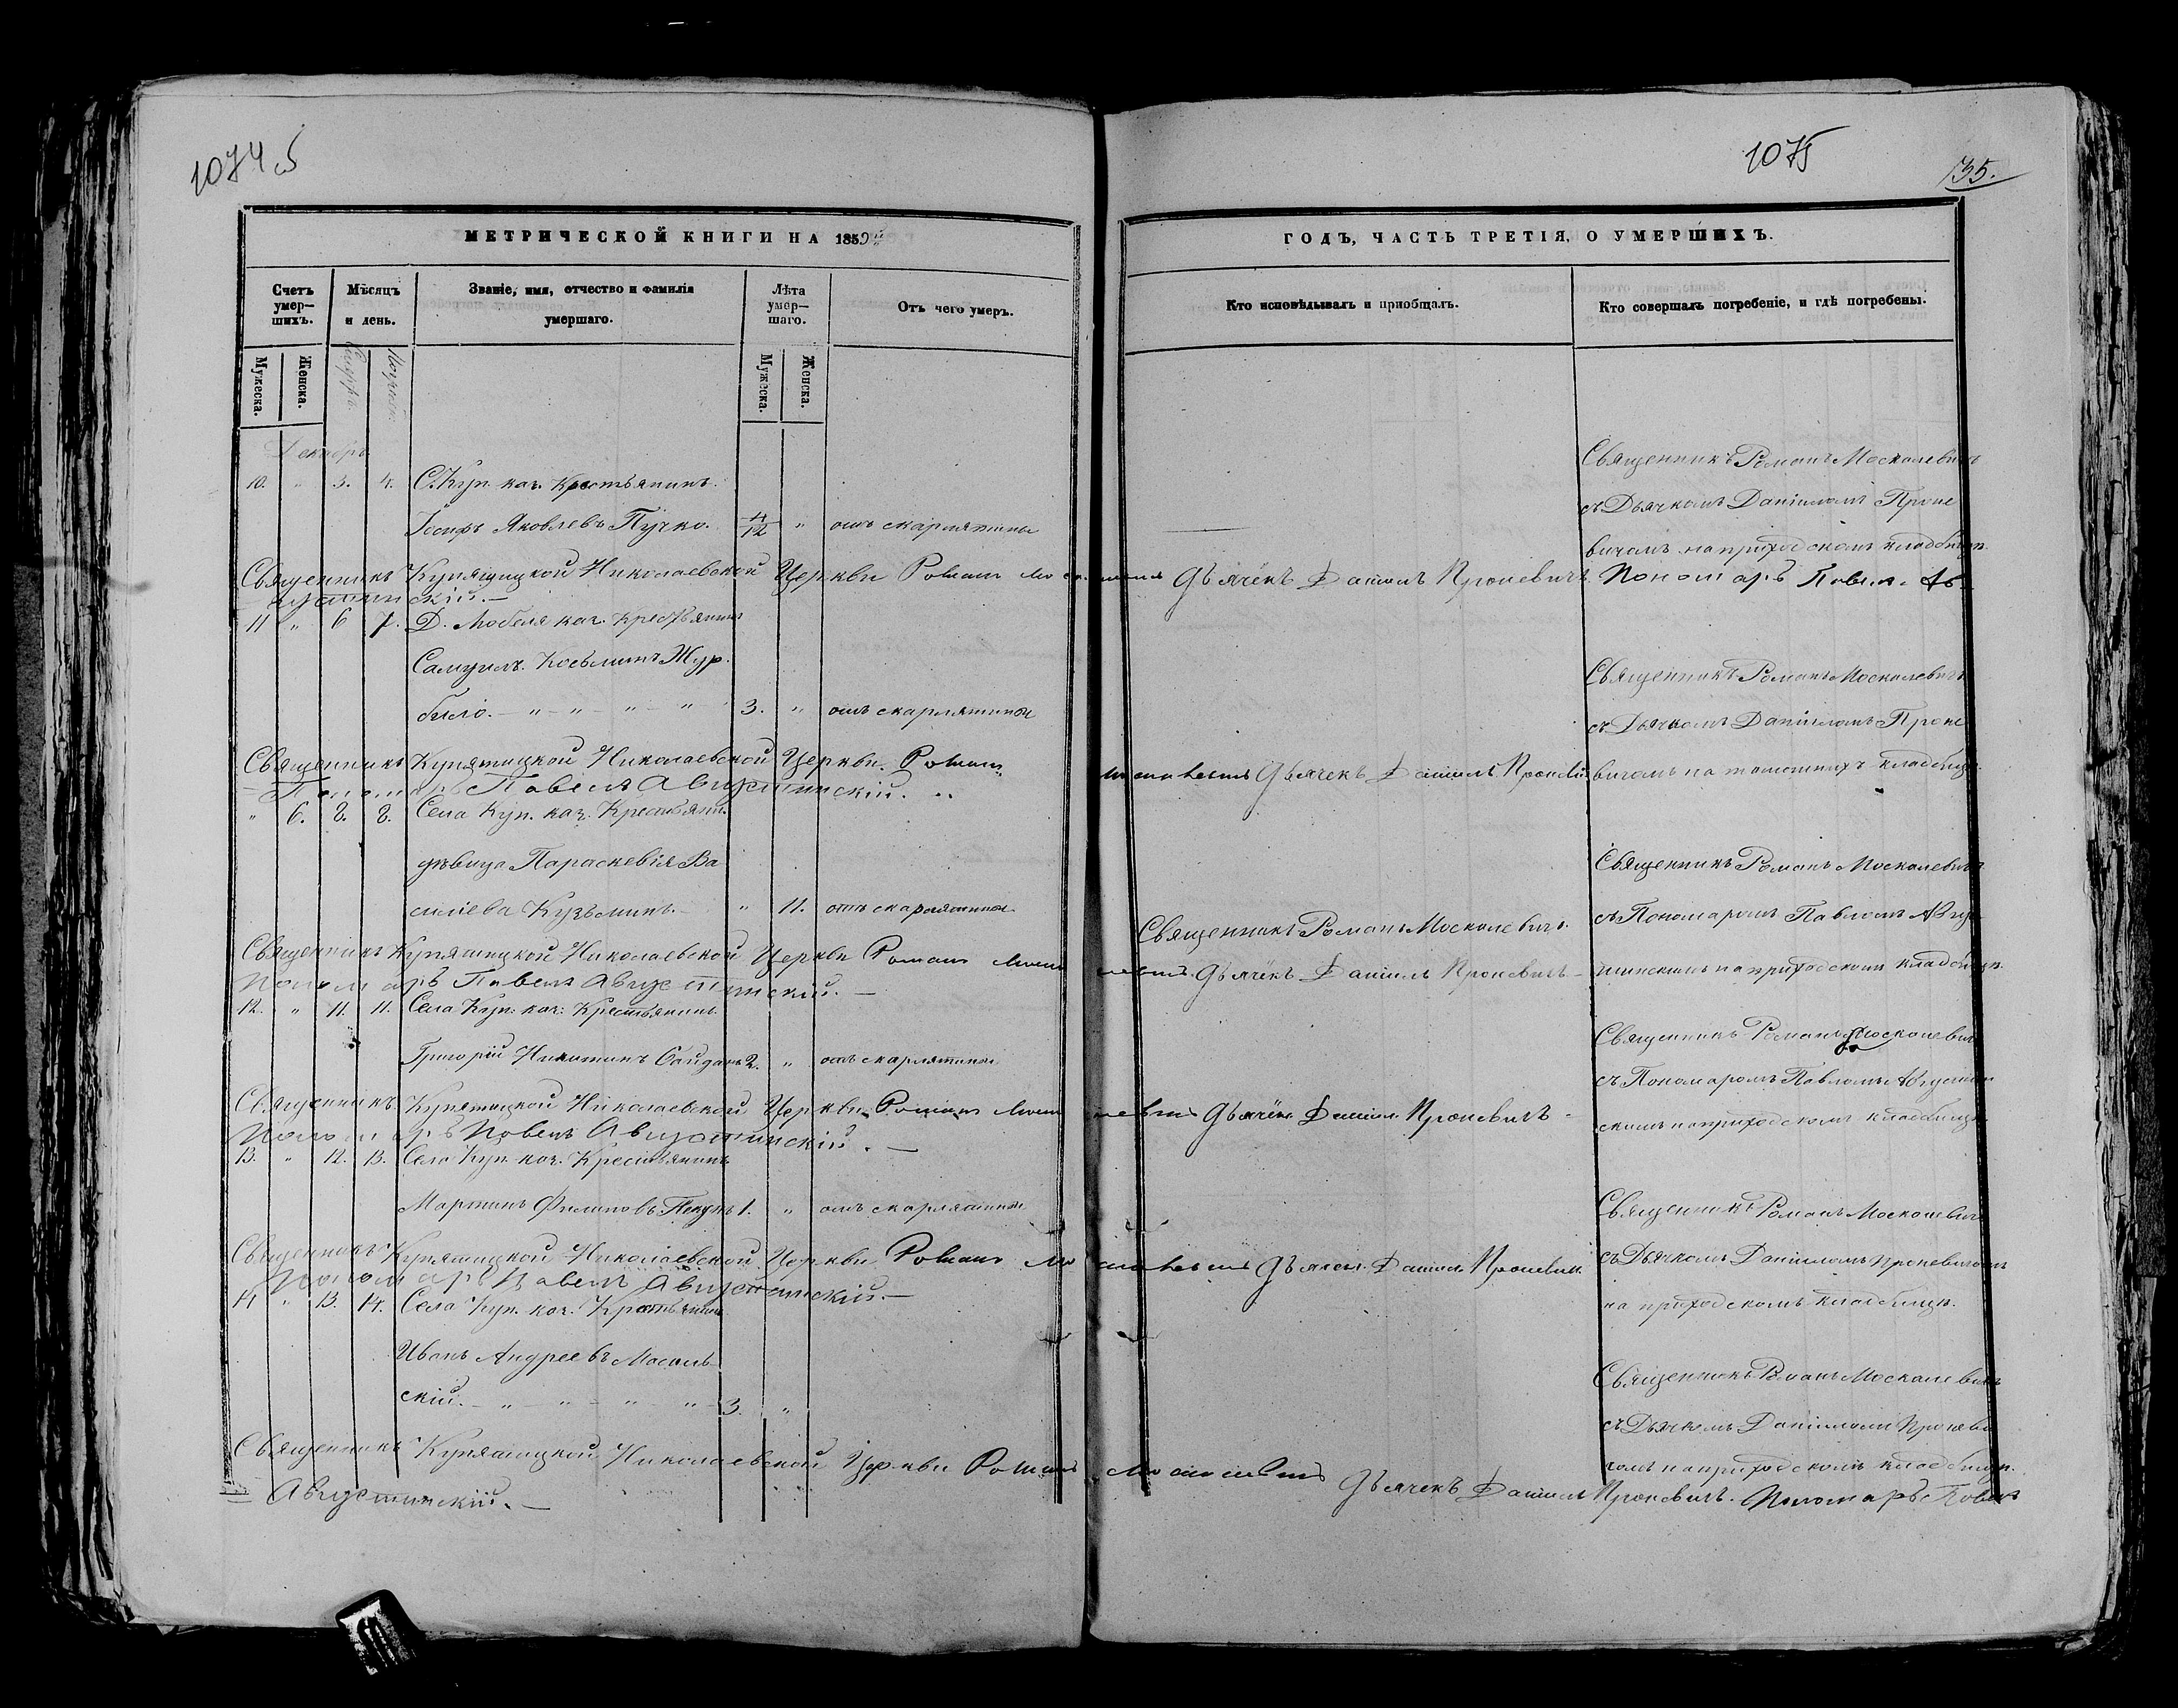 1074
1075
135.
МЕТРИЧЕСКОЙ КНИГИ НА 185
ГОДЪ, ЧАСТЬ ТРЕТІЯ, О УМЕРШИХЪ.
Счетъ умер—шихъ.
Мѣсяцъ и день.
Званіе, имя, отчество и фамилія умершаго.
Лѣта умер—шаго.
Отъ чего умеръ.
Кто исповѣдывалъ и пріобщалъ.
Кто совершалъ погребеніе, и гдѣ погребены.
Мужеска.
Женска.
Мужеска.
Женска.
Декабрь
10. " 3. 4. С. Куп. каз. Крестьянинъ
Іосифъ Яковлевъ Пучко. 4/12 " отъ скарлятины
Священникъ Романъ Москалевичъ
съ Дьячкомъ Даніиломъ Проне
вичомъ на приходскомъ кладбищѣ.
Священникъ Купятицкой Николаевской Церкви Романъ Дьячекъ Даниилъ Проневичъ Пономаръ Павелъ Ав
густинскій.—
11 " 6 7. Д. каз. Крестьянинъ
Самуилъ Косьминъ Жур
било. — " — " — " — " 3. " отъ скарлятины
Священникъ Романъ Москалевичъ
съ Дьячкомъ Даніиломъ Проне
вичомъ на кладбищѣ
Священникъ Купятицкой Николаевской Церкви Романъ Москалевичъ Дьячекъ Даниилъ Проневичъ
Пономаръ Павелъ Августинскій.
" 6. 8. 8. Села Куп. каз. Крестьян.
дѣвица Параскевія Ва
силіева Кузьминъ. — " 11. отъ скарлятины
Священникъ Романъ Москалевичъ.
Священникъ Романъ Москалевичъ
съ Пономаромъ Павломъ Авгус
тинскимъ на приходскомъ кладбищѣ.
Священникъ Купятицкой Николаевской Церкви Романъ Дьячекъ Даниилъ Проневичъ —
Пономаръ Павелъ Августинскій. —
12. " 11. 11. Села Куп. каз. Крестьянинъ
Григорій Никитинъ 2. " отъ скарлятины
Священникъ Романъ Москалевичъ
съ Пономаромъ Павломъ Августин
скимъ на приходскомъ кладбищѣ
Священникъ Купятицкой Николаевской Церкви Романъ Дьячекъ Даниилъ Проневичъ
Пономаръ Павелъ Августинскій. —
13. " 12. 13. Села Куп. каз. Крестьянинъ
Мартинъ Филиповъ 1. " отъ скарлятины
Священникъ Романъ Москалевичъ
съ Дьячкомъ Даніиломъ Проневичомъ
на приходскомъ кладбищѣ.
Священникъ Купятицкой Николаевской Церкви Романъ Москалевичъ Дьячекъ Даниилъ Проневичъ
Пономаръ Павелъ Августинскій. —
14 " 13. 14. Села Куп. каз. Крестьянинъ
Иванъ Андреевъ
скій. — " — " — " — " — 3. "
Священникъ Романъ Москалевичъ
съ Дьячкомъ Даніиломъ Проневи
чомъ на приходскомъ кладбищѣ.
Священникъ Купятицкой Николаевской Церкви Романъ Москалевичъ Дьячекъ Даниилъ Проневичъ. Пономаръ Павелъ
Августинскій. —